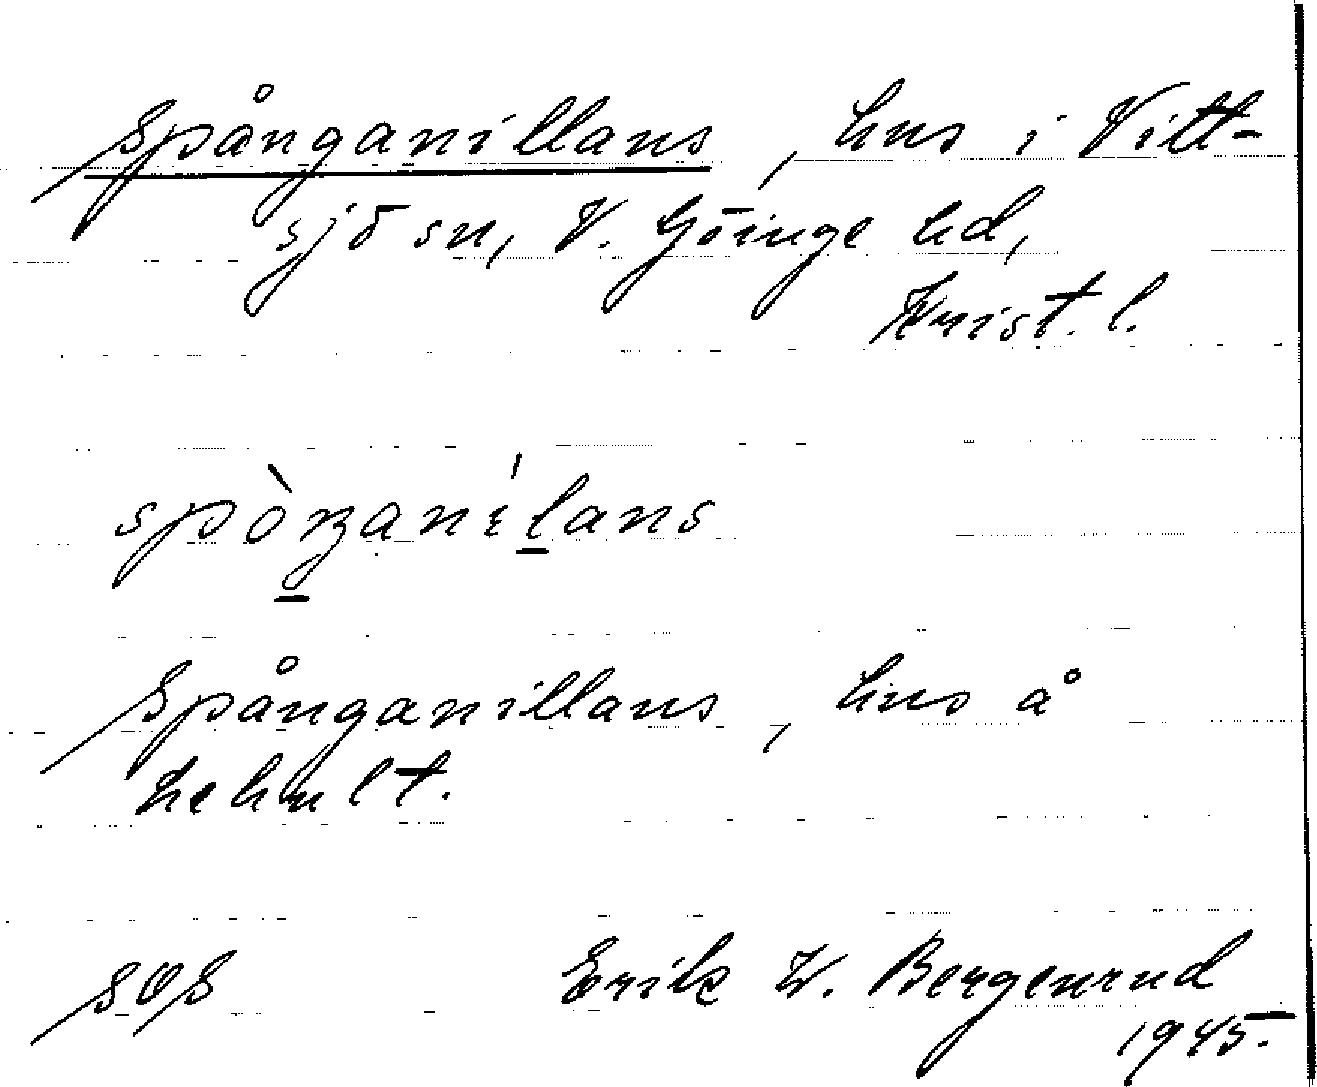 Spånganillans, hus i Vitt-
sjö sn, V. Göinge hd,
Krist. l.
spòŋanílans
Spånganillans, hus å
hehult.
SOS Erik W. Bergenrud
1945.